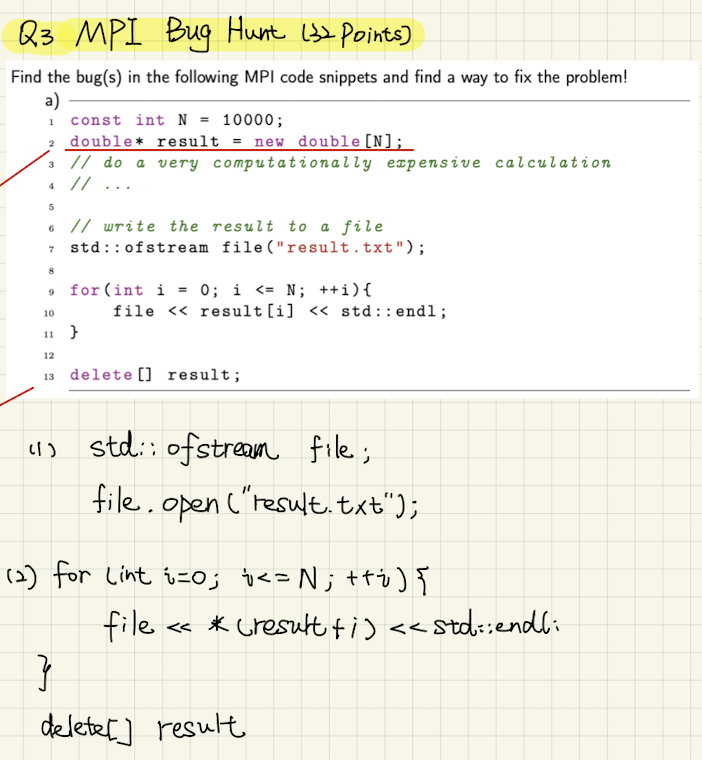 Q3 MPI Bug Hunt (32 Points)
Find the bug(s) in the following MPI code snippets and find a way to fix the problem!
a)
1 const int N = 10000;
2 double* result = new double[N];
3 // do a very computationally expensive calculation
4 // ...
5
6 // write the result to a file
7 std::ofstream file("result.txt");
8
9 for(int i = 0; i <= N; ++i){
10 file << result[i] << std::endl;
11 }
12
13 delete[] result;
(1) std::ofstream file;
file.open("result.txt");
(2) for (int i=0; i<=N; ++i){
file << *(result+i) <<std::endl;
}
delete[] result